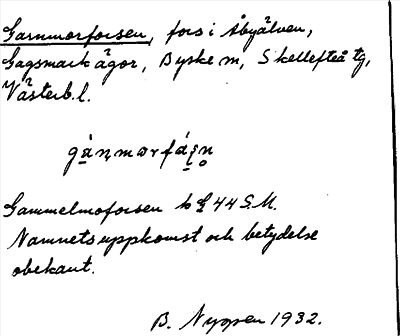 Garnmorforsen, fors i Åbyälven,
Gagsmark ägor, Byske sn, Skellefteå tg,
Västerb. l.
Gammelmoforsen
Namnets uppkomst och betydelse
obekant.
B. Nygren 1932.